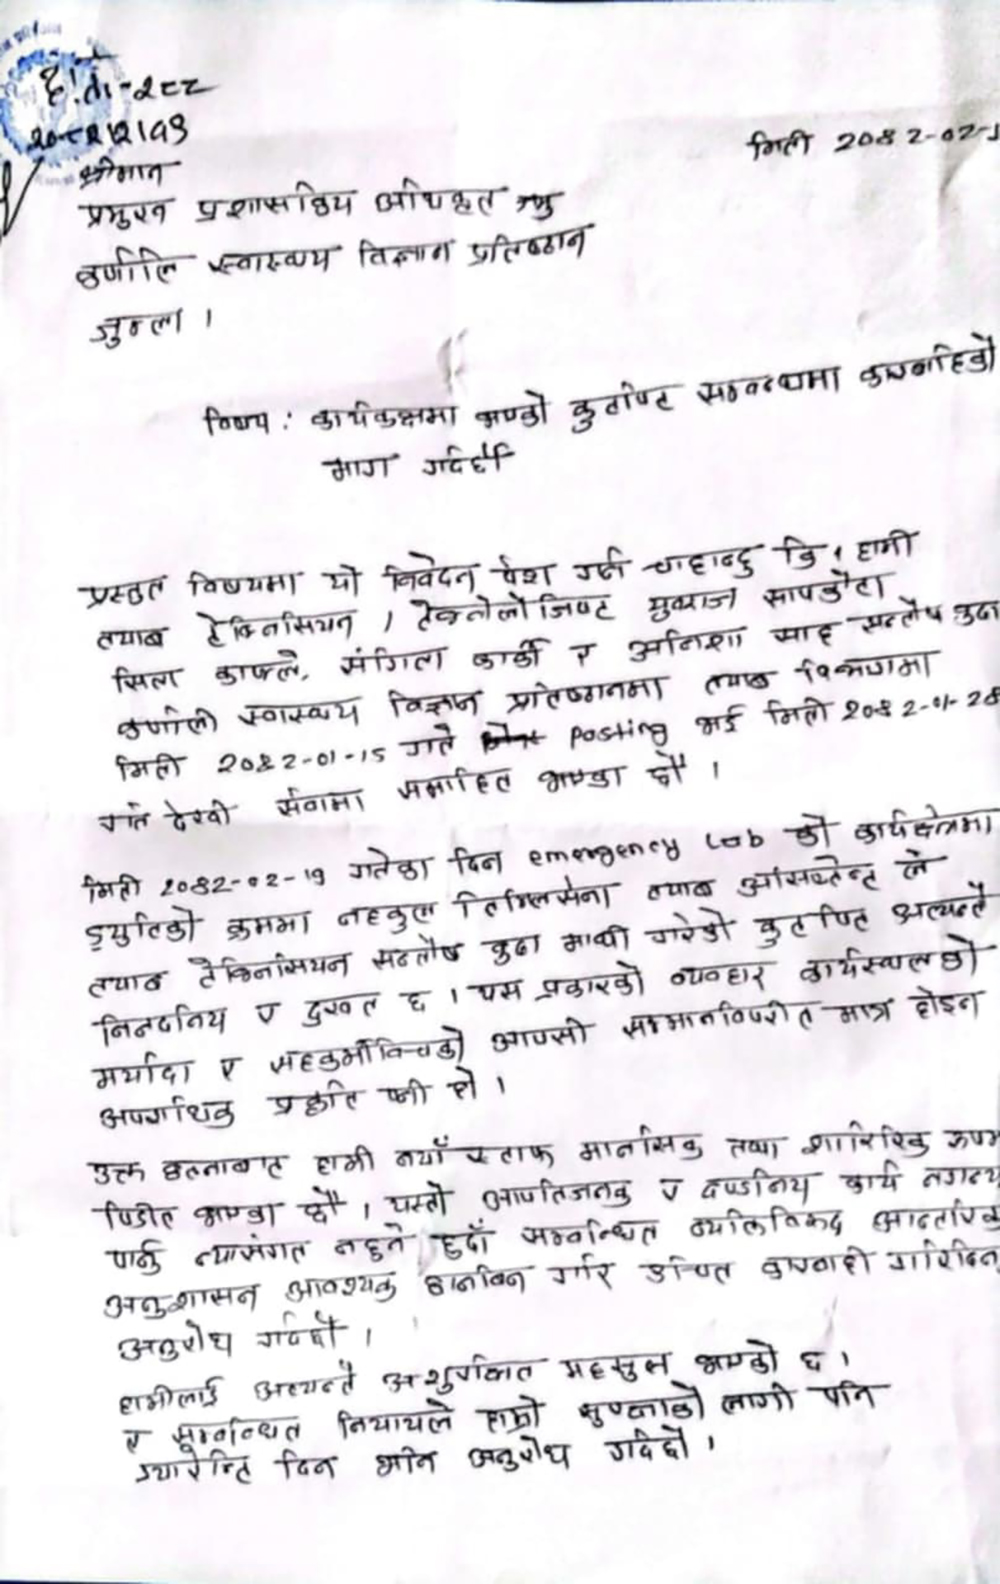 द.नं-२८८
२०८२।२।१९
मिती 2082-02-
श्रीमान
प्रमुख प्रशासकिय अधिकृत ज्यु
कर्णालि स्वास्थ्य विज्ञान प्रतिष्ठान
जुम्ला ।
विषय : कार्यकक्षमा भएको कुटपिट सम्बन्धमा कारबाहिको
माग गर्दछौं
प्रस्तुत विषयमा यो निवेदन पेश गर्न चाहान्छु कि, हामी
ल्याब टेक्निसियन / टेक्नोलोजिष्ट युवराज सापकोटा
सिला काफ्ले, संगिता कार्की र अनिशा साह सन्तोष बुढा
कर्णाली स्वास्थ्य विज्ञान प्रतिष्ठानमा ल्याब विभागमा
मिती 2082-01-15 गते posting भई मिती 2082-01-28
गते देखी सेवामा समाहित भएका छौ ।
मिती 2082-02-19 गतेका दिन emergency Lab को कार्यक्षेत्रमा
ड्युटिको क्रममा नहकुल तिमिल्सेना ल्याब असिस्टेन्ट ले
ल्याब टेक्निसियन सन्तोष बुढा माथी गरेको कुटपिट अत्यन्तै
निन्दनिय र दुखत छ । यस प्रकारको व्यवहार कार्यस्थलको
मर्यादा र सहकर्मीबिचको आपसी सम्मानविपरीत मात्र होइन
अपराधिक प्रकृति पनी हो ।
उक्त घटनाबाट हामी नयाँ स्टाफ मानसिक तथा शारिरिक रुपमा
पिडीत भएका छौ । यस्तो आपतिजनक र दण्डनिय कार्य नगन्य
पार्नु न्यासंगत नहुने हुदाँ सम्बन्धित व्यक्तिविरुद्ध आन्तरिक
अनुशासन आवश्यक छानविन गरि उचित कारबाही गरिदिन
अनुरोध गर्दछौ ।
हामीलाई अत्यन्तै असुरक्षित महसुस भएको छ ।
र सम्बन्धित निकायले हाम्रो सुरक्षाको लागी पनि
ग्यारेन्टि दिन भनि अनुरोध गर्दछौ ।